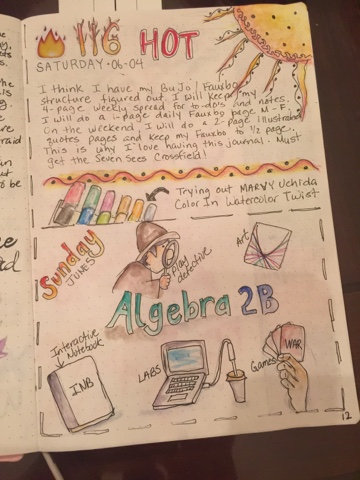 116 HOT
SATURDAY • 06 • 04
I think I have my BuJo / Fauxbo
structure figured out. I will keep my
4-page weekly spread for to-do's and notes.
I will do a 1-page daily Fauxbo page M-F.
On the weekend, I will do a 2-page illustrated
quotes pages and keep my Fauxbo to 1/2 page.
This is why I love having this journal. Must
get the Seven Seas Crossfield!
Trying out MARVY Uchida
Color In Watercolor Twist
Sunday
JUNE 5
Play
detective
Art
Algebra 2B
Interactive
Notebook
INB
LABS
Games
WAR
12